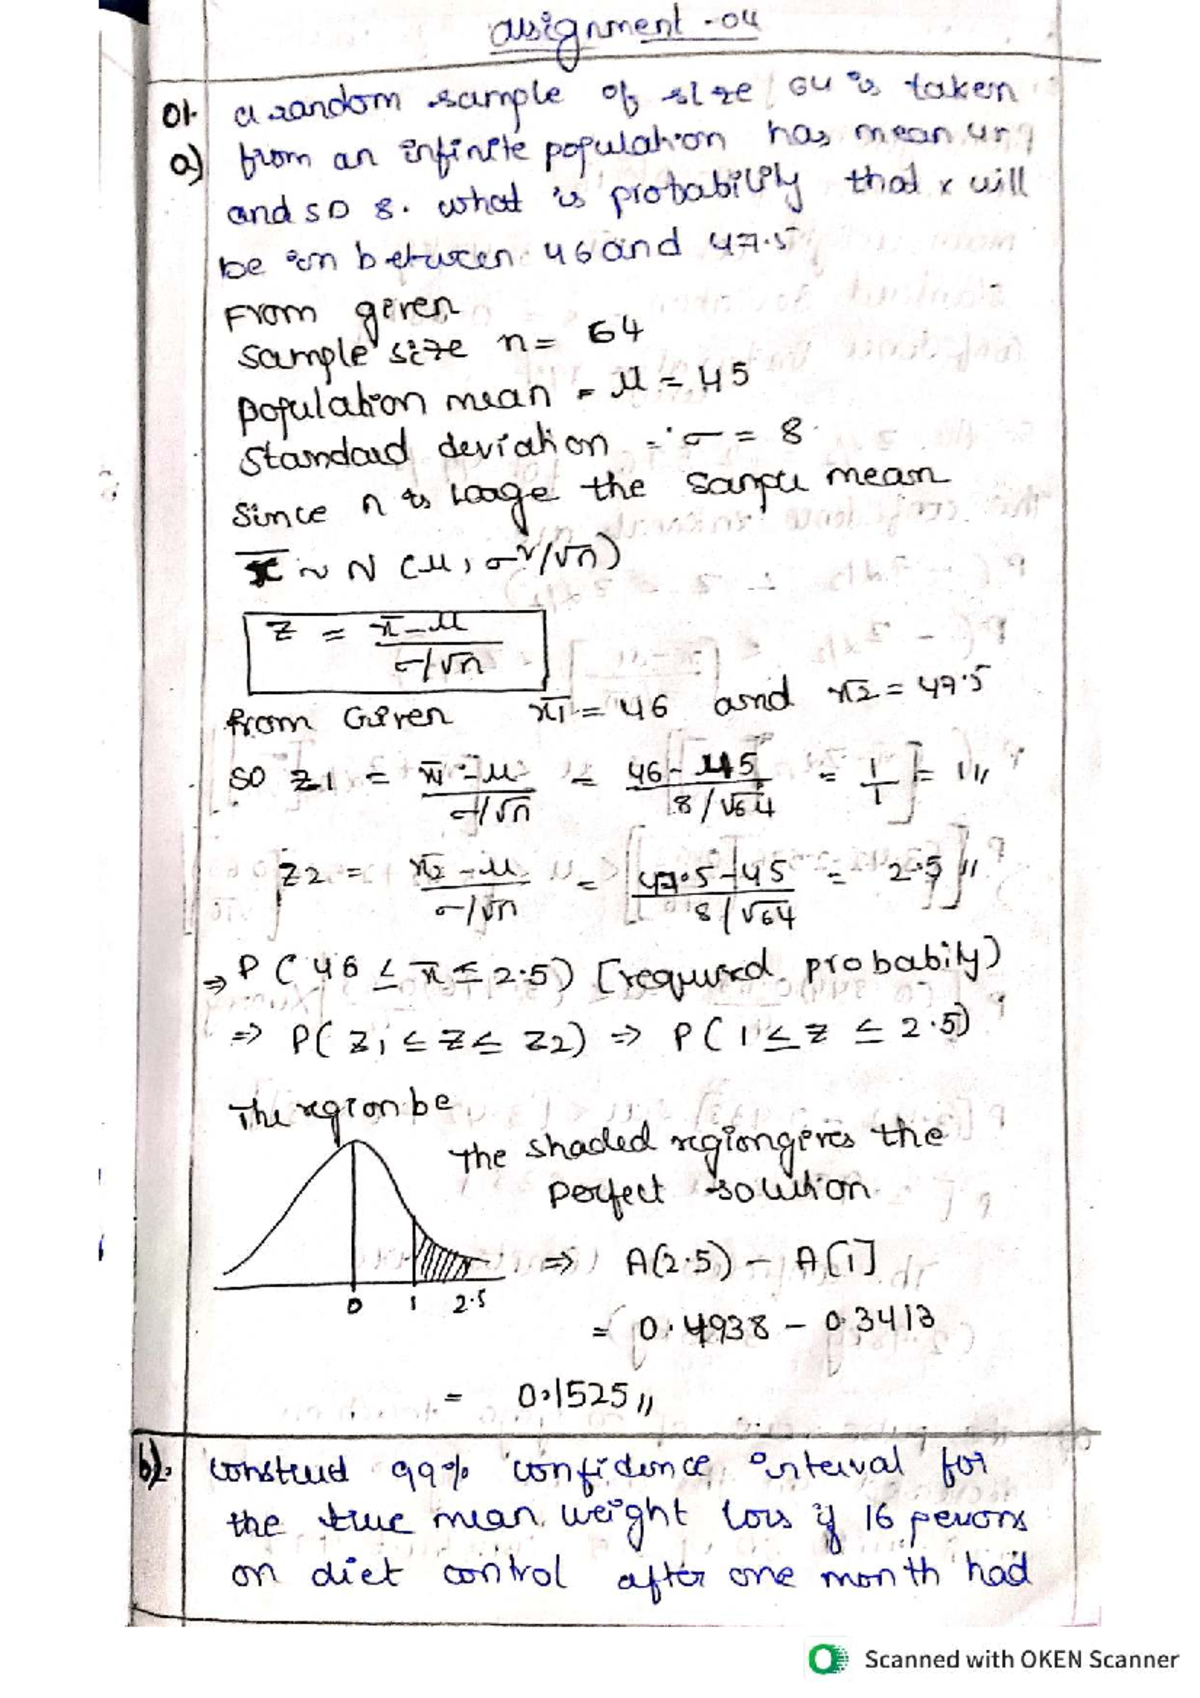 assignment -04
01. a random sample of size 64 is taken
a) from an infinite population has mean 45
and SD 8. what is probability that x will
be in between 46 and 47.5
From given
sample size n = 64
population mean = μ = 45
Standard deviation = σ = 8
Since n is large the sample mean
x̄ ~ N (μ, σ²/√n)
z = x̄-μ / σ/√n
from Given x̄1 = 46 and x̄2 = 47.5
so z1 = x̄1-μ / σ/√n = 46-45 / 8/√64 = 1/1 = 1//
z2 = x̄2-μ / σ/√n = 47.5-45 / 8/√64 = 2.5//
⇒ P(46 ≤ x̄ ≤ 2.5) [required probabily)
⇒ P(z1 ≤ z ≤ z2) ⇒ P(1 ≤ z ≤ 2.5)
The region be
The shaded region gives the
perfect solution
0 1 2.5
⇒ A(2.5) - A[1]
= 0.4938 - 0.3413
= 0.1525//
b). construct 99% confidence interval for
the true mean weight loss if 16 persons
on diet control after one month had
Scanned with OKEN Scanner